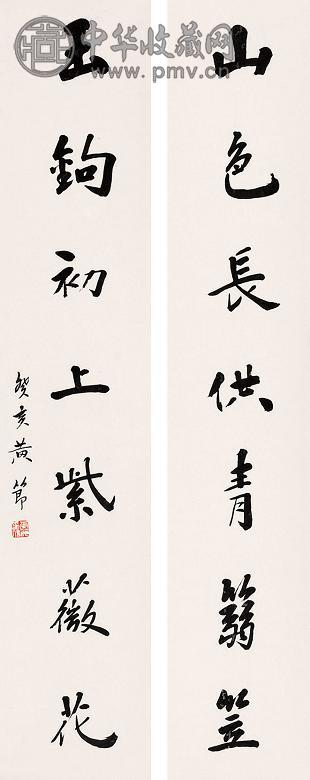 中华收藏网
www.pmv.cn
山色長供青篛笠
玉鉤初上紫薇花
癸亥黄節